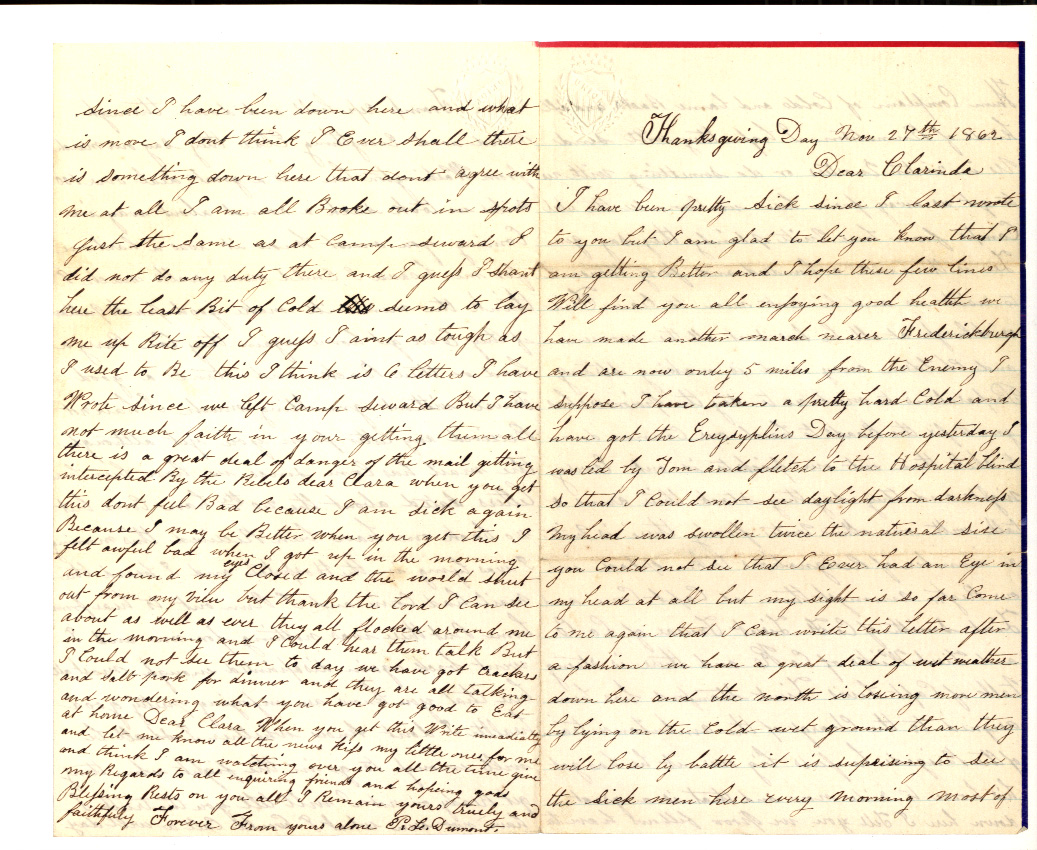 Thanksgiving Day Nov 27th 1862
Dear Clarinda
I have been pretty sick since I last wrote
to you but I am glad to let you know that I
am getting Better and I hope these few lines
Will find you all enjoying good health we
have made another march nearer Frederickburgh
and are now onley 5 miles from the Enemy I
suppose I have taken a pretty hard Cold and
have got the Ereysyplius Day before yesterday I
was led by Tom and fletch to the Hospital blind
so that I Could not see daylight from darkness
My head was swollen twice the natural sise
you Could not see that I Ever had an Eye in
my head at all but my sight is so far Come
to me again that I Can write this letter after
a fashion we have a great deal of wet weather
down here and the north is loseing more men
by lying on the Cold wet ground than they
will lose by battle it is supriseing to see
the sick men here every morning most of
since I have been down here and what
is more I dont think I Ever shall there
is something down here that dont agree with
me at all I am all Brooke out in spots
Just the same as at Camp seward I
did not do any duty there and I guess I shant
here the least Bit of Cold seems to lay
me up Rite off I guess I aint as tough as
I used to Be this I think is 6 letters I have
Wrote since we left Camp seward But I have
not much faith in your getting them all
there is a great deal of danger of the mail getting
intercepted By the Rebels dear Clara when you get
this dont feel Bad because I am sick again
Because I may be Better when you get this I
felt awful bad when I got up in the morning
and found my eyes Closed and the world shut
out from my view but thank the Lord I Can see
about as well as ever they all flocked around me
in the morning and I Could hear them talk But
I Could not see them to day we have got Crackers
and salt pork for dinner and they are all talking
and wondering what you have got good to Eat
at home Dear Clara When you get this Write imeadiatly
and let me know all the news Kiss my little ones for me
and think I am watching over you all the time give
my Regards to all enquiring friends and hopeing gods
Blessing Rests on you all I Remain yours truely and
faithfuly Forever From yours alone P. L. Dumont